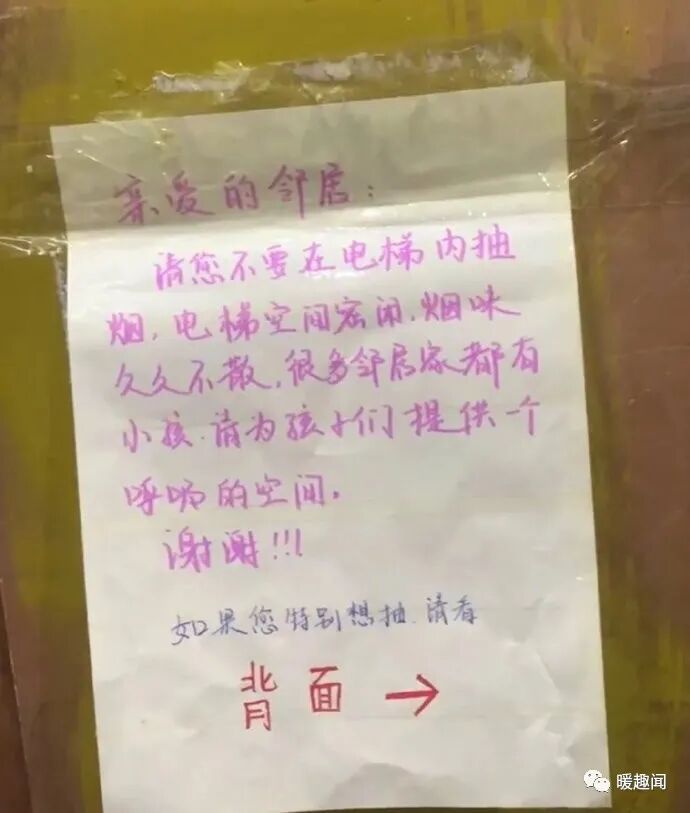 亲爱的邻居：
请您不要在电梯内抽
烟，电梯空间密闭，烟味
久久不散，很多邻居家都有
小孩，请为孩子们提供一个
呼吸的空间。
谢谢!!!
如果您特别想抽，请看
背面→
暖趣闻